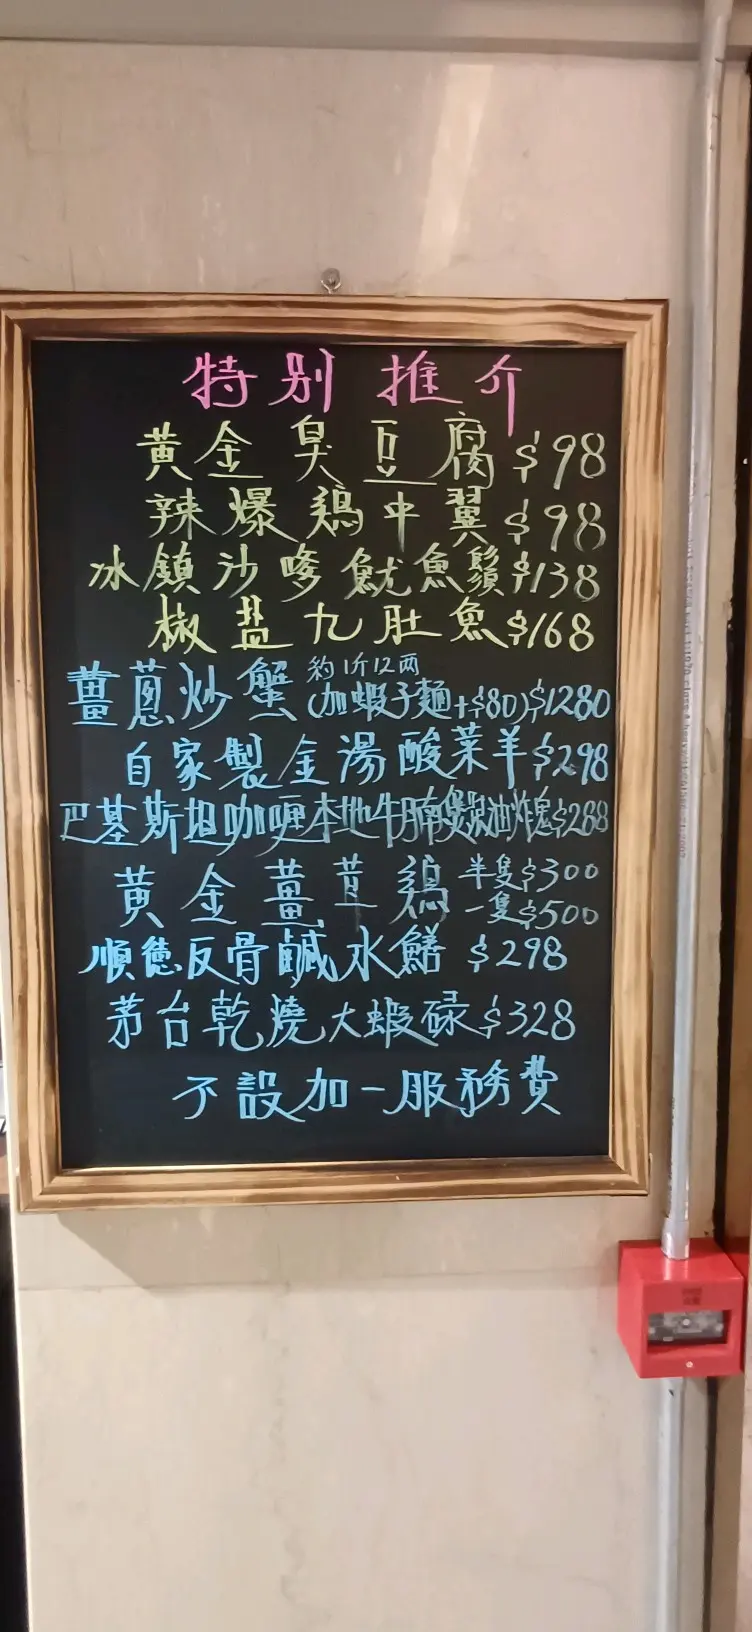 特別推介
黄金臭豆腐 $98
辣爆鷄中翼 $98
冰鎮沙嗲魷魚鬚 $138
椒盐九肚魚 $168
薑蔥炒蟹 約1斤12両 (加蝦子麵+$80) $1280
自家製金湯酸菜羊 $298
巴基斯坦咖喱本地牛腩煲 油炸鬼 $288
黄金薑茸鷄 半隻$300
一隻$500
順德反骨鹹水鱔 $298
茅台乾燒大蝦碌 $328
不設加一服務費